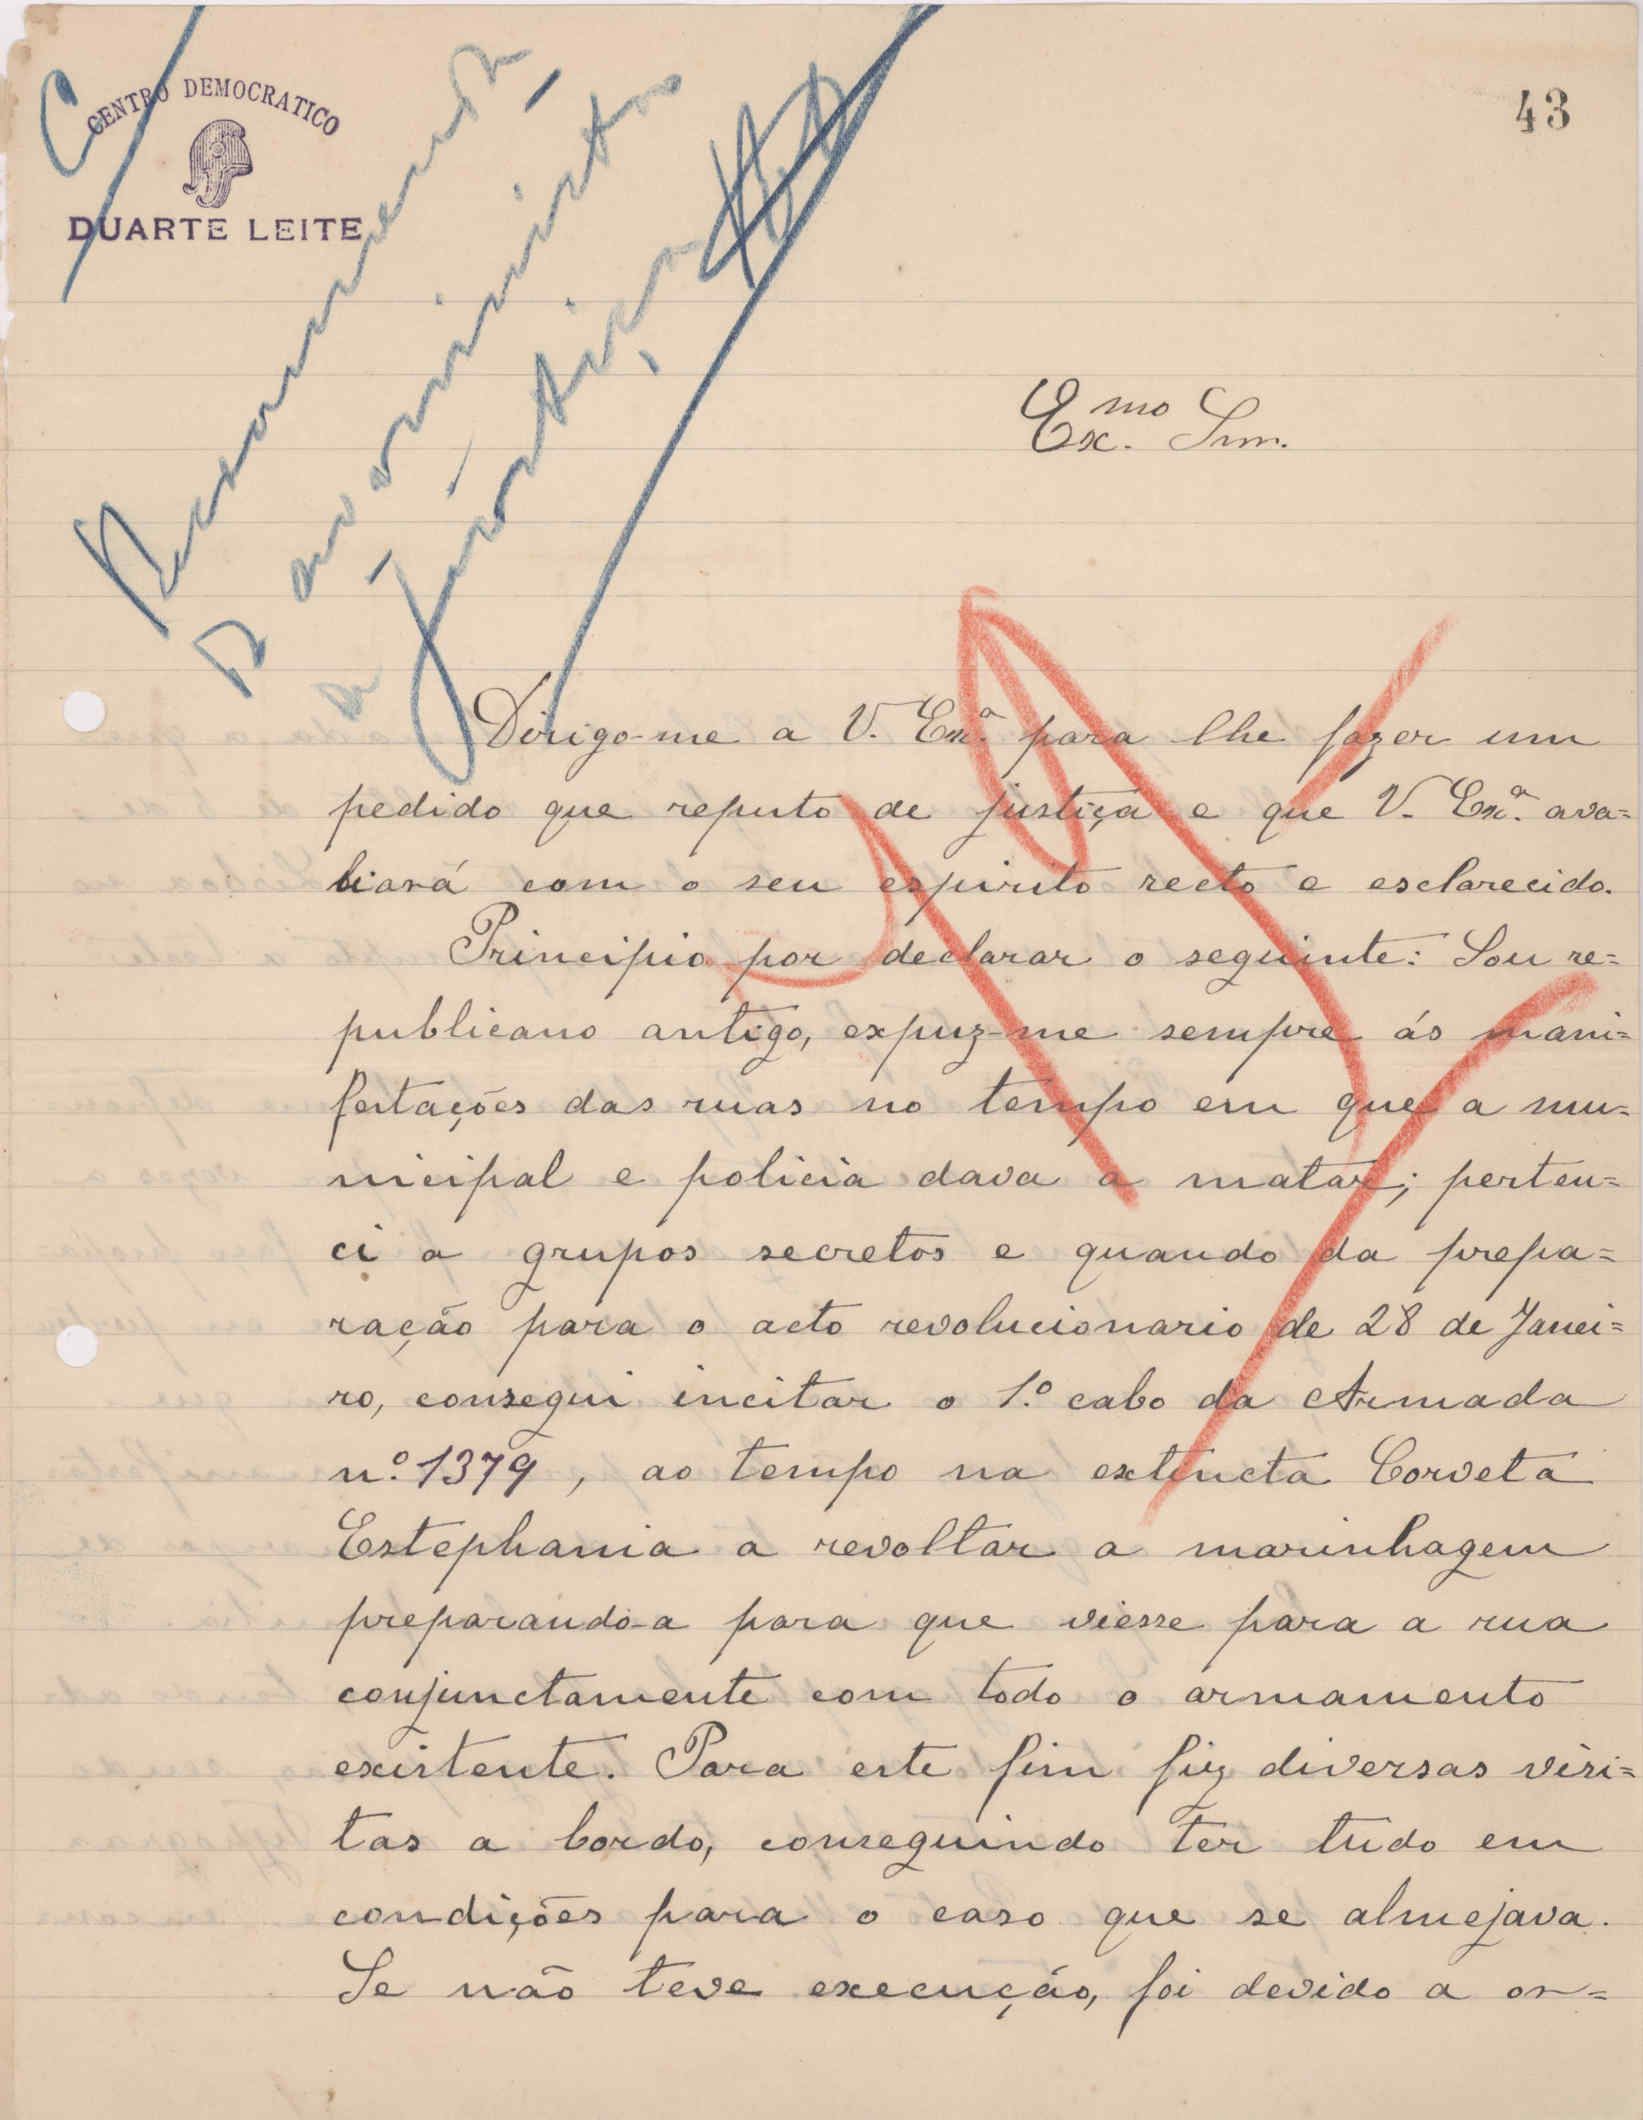 CENTRO DEMOCRATICO
DUARTE LEITE
43
Recommenda
ao ministro
Justiça
Ex.mo Snr.
Dirigo-me a V. Ex.ª para lhe fazer um
pedido que reputo de justiça e que V. Ex.ª ava=
liará com o seu espirito recto e esclarecido.
Principio por declarar o seguinte: Sou re=
publicano antigo, expuz-me sempre ás mani=
festações das ruas no tempo em que a mu=
nicipal e policia dava a matar; perten=
ci a grupos secretos e quando da prepa=
ração para o acto revolucionario de 28 de Janei=
ro, consegui incitar o 1.º cabo da Armada
n.º 1379, ao tempo na extincta Corveta
Estephania a revoltar a marinhagem
preparando-a para que viesse para a rua
conjunctamente com todo o armamento
existente. Para este fim fiz diversas visi=
tas a bordo, conseguindo ter tudo em
condições para o caso que se almejava.
Se não teve execução, foi devido a or=